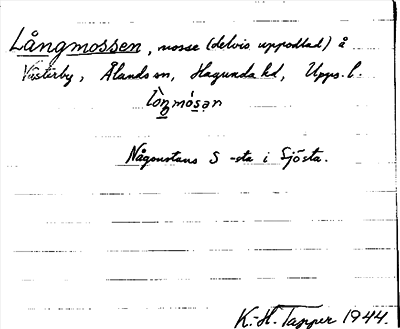 Långmossen, mosse (delvis uppodlad) å
Västerby, Ålands sn, Hagunda hd, Upps. l.
Någonstans S -sta i Sjösta.
K.-H. Tapper 1944.